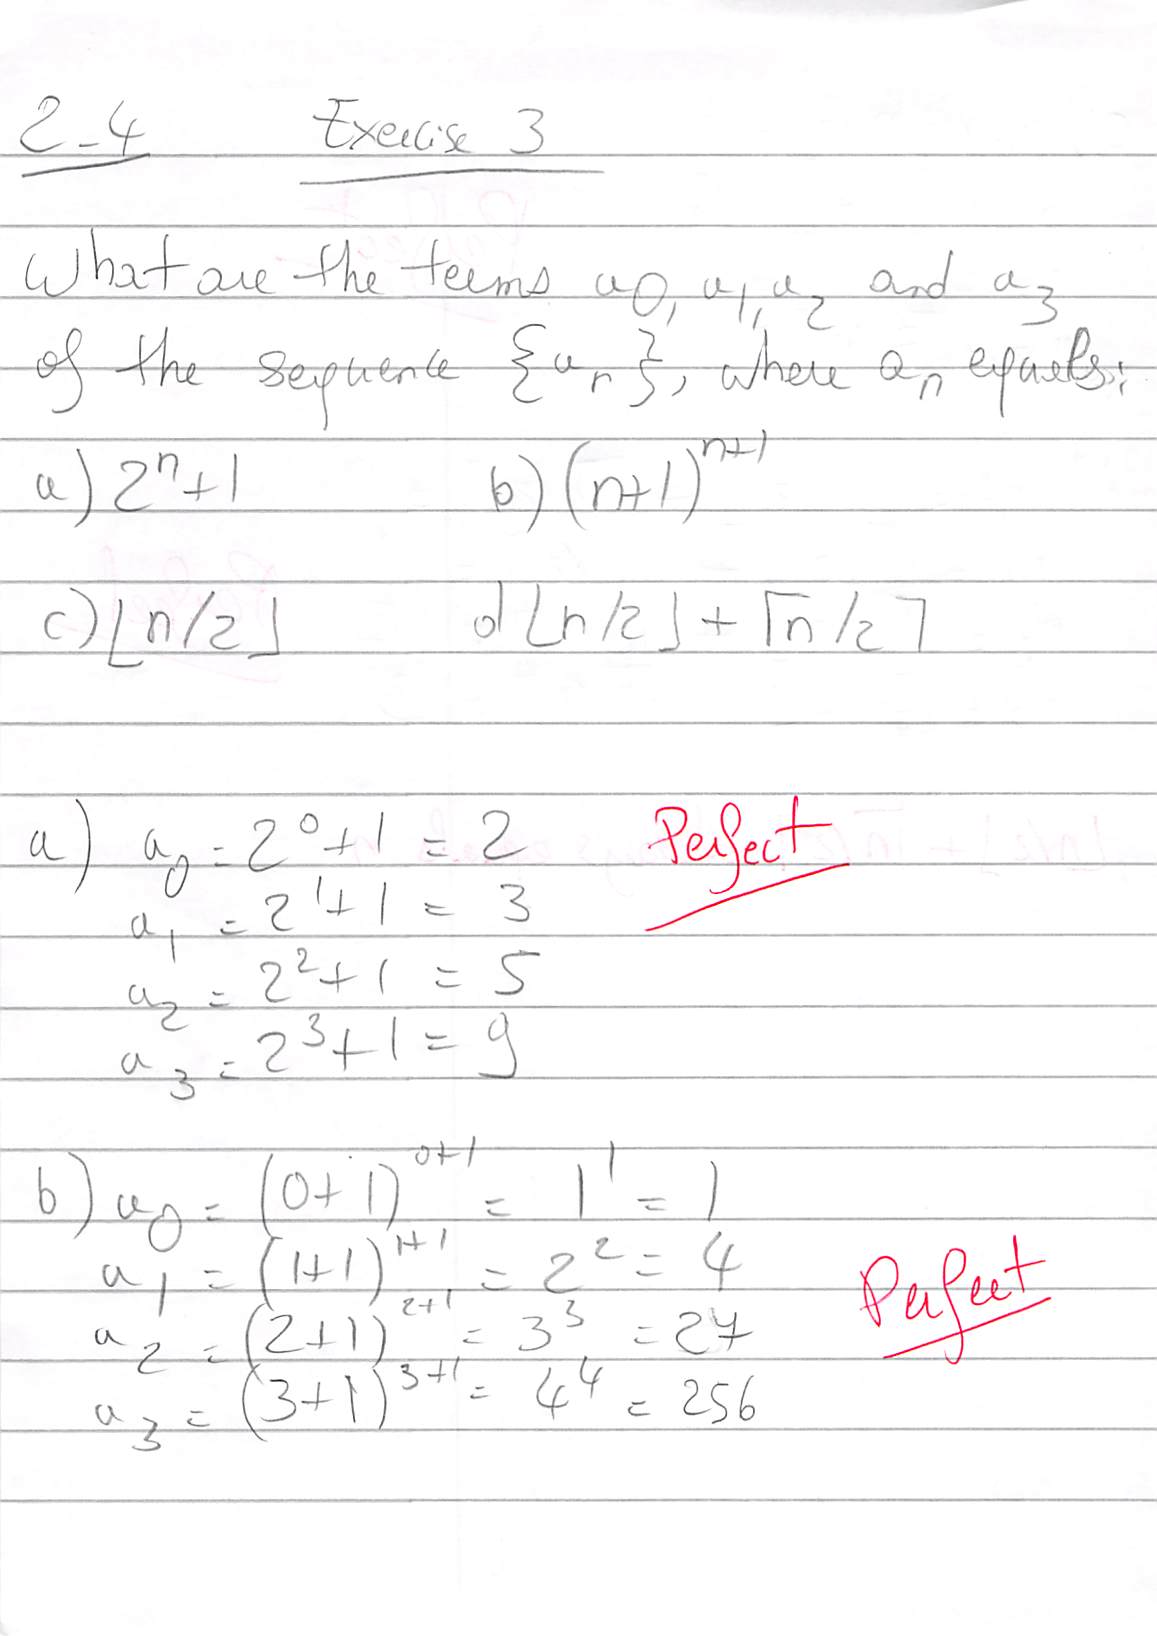 2-4 Exercise 3
What are the terms a0, a1, a2 and a3
of the sequence {an}, where an equals:
a) 2^n+1 b) (n+1)^n+1
c) ⌊n/2⌋ d ⌊n/2⌋ + ⌈n/2⌉
a) a0 = 2^0+1 = 2 Perfect
a1 = 2^1+1 = 3
a2 = 2^2+1 = 5
a3 = 2^3+1 = 9
b) a0 = (0+1)^0+1 = 1^1 = 1
a1 = (1+1)^1+1 = 2^2 = 4
Perfect
a2 = (2+1)^2+1 = 3^3 = 27
a3 = (3+1)^3+1 = 4^4 = 256